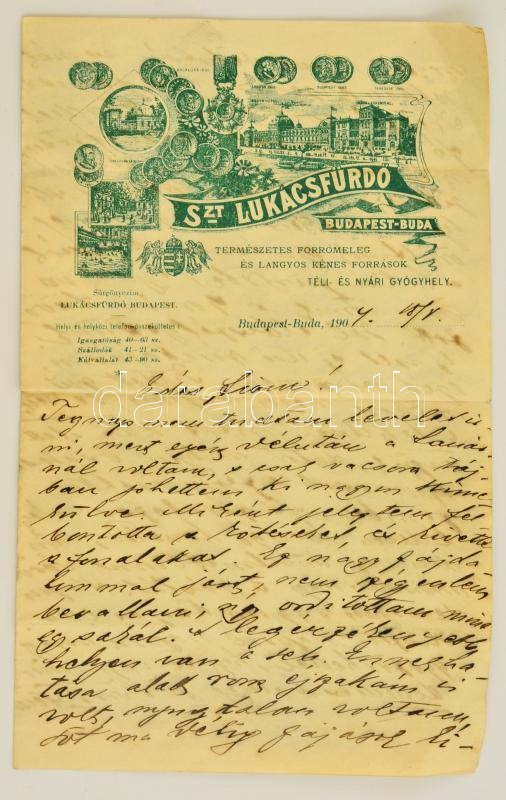 SZT LUKÁCSFÜRDŐ
BUDAPEST-BUDA
TERMÉSZETES FORRÓMELEG
ÉS LANGYOS KÉNES FORRÁSOK
TÉLI- ÉS NYÁRI GYÓGYHELY.
Sürgönyczim:
LUKÁCSFÜRDŐ BUDAPEST.
Helyi és helyközi telefon-összeköttetés:
Igazgatóság 40—63 sz.
Szállodák 41—21 sz.
Kútvállalat 43—90 sz.
Budapest-Buda, 190
Édes !
Tegnap nem tudtam levelet ir-
ni, mert egész délután a Tanár-
nál voltam, s csak vacsora táj-
ban jöhettem ki nagyon kime-
rülve. Miként jeleztem fel
bontotta a kötéseket, és kivette
a fonalakat. Ez nagy fájda
lommal járt, nem szégyenlem
bevallani, ordítottam mint
egy szamár. A legérzékenyebb
helyen van a seb. Ennek ha
tása alatt rossz éjszakám is
volt, nyugtalan voltam,
sőt ma fájások
darabanth